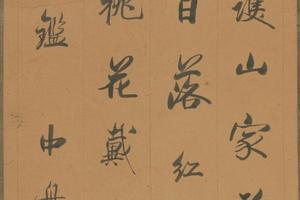 護山家
日落紅
桃花戴
鑑中